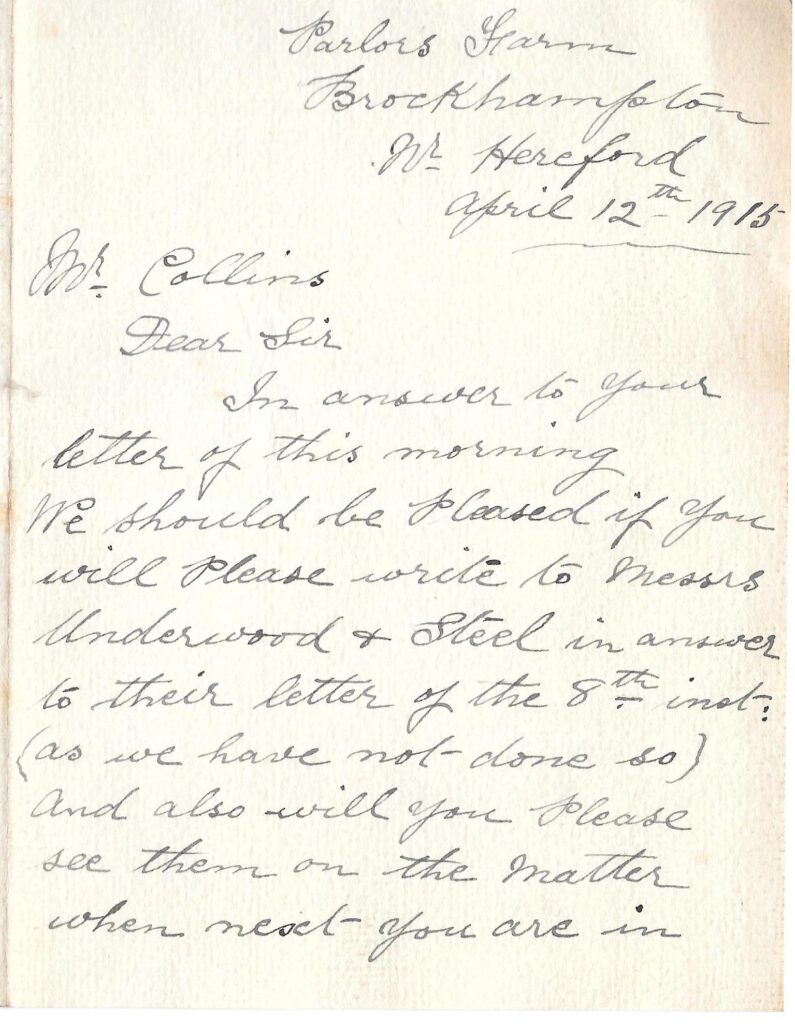 Parlors Farm
Brockhampton
Nr Hereford
April 12th 1915
Mr. Collins
Dear Sir
In answer to your
letter of this morning
We should be Pleased if You
will Please write to Messrs
Underwood & Steel in answer
to their letter of the 8th inst:
(as we have not done so)
And also will you Please
see them on the Matter
when next you are in